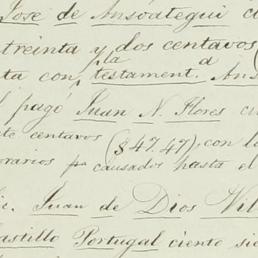 José de Ansoategui
treinta y dos centavos
ta con, la testament.a Ans
pagó Juan N. Flores
te centavos ($47.47), con l
orarios pa causados hasta el
Juan de Dios Vil
astillo Portugal ciento si